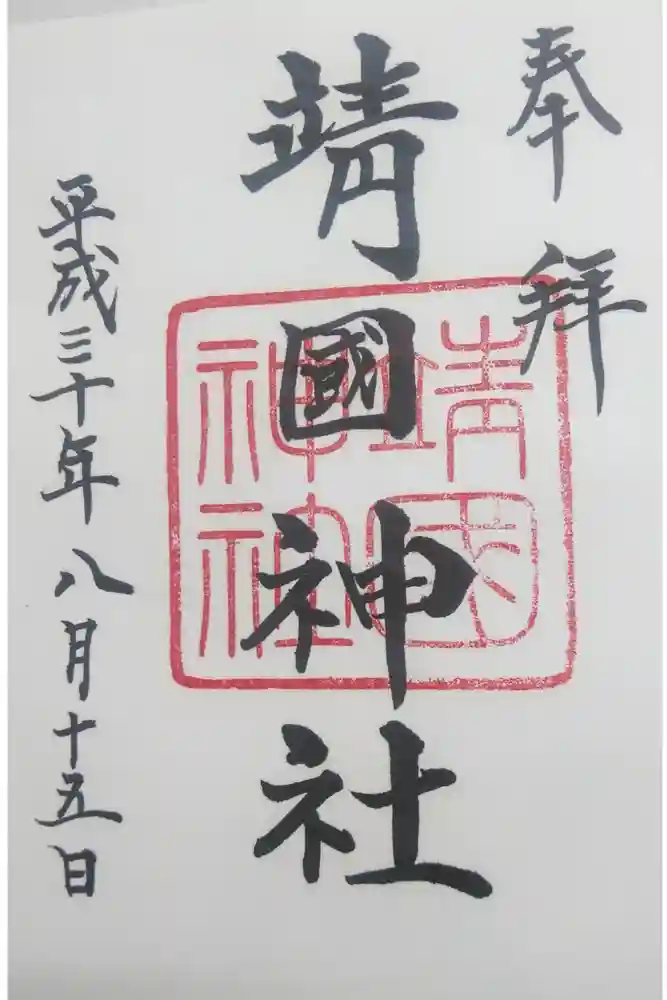 奉拝
靖國神社
靖国
神社
平成三十年八月十五日